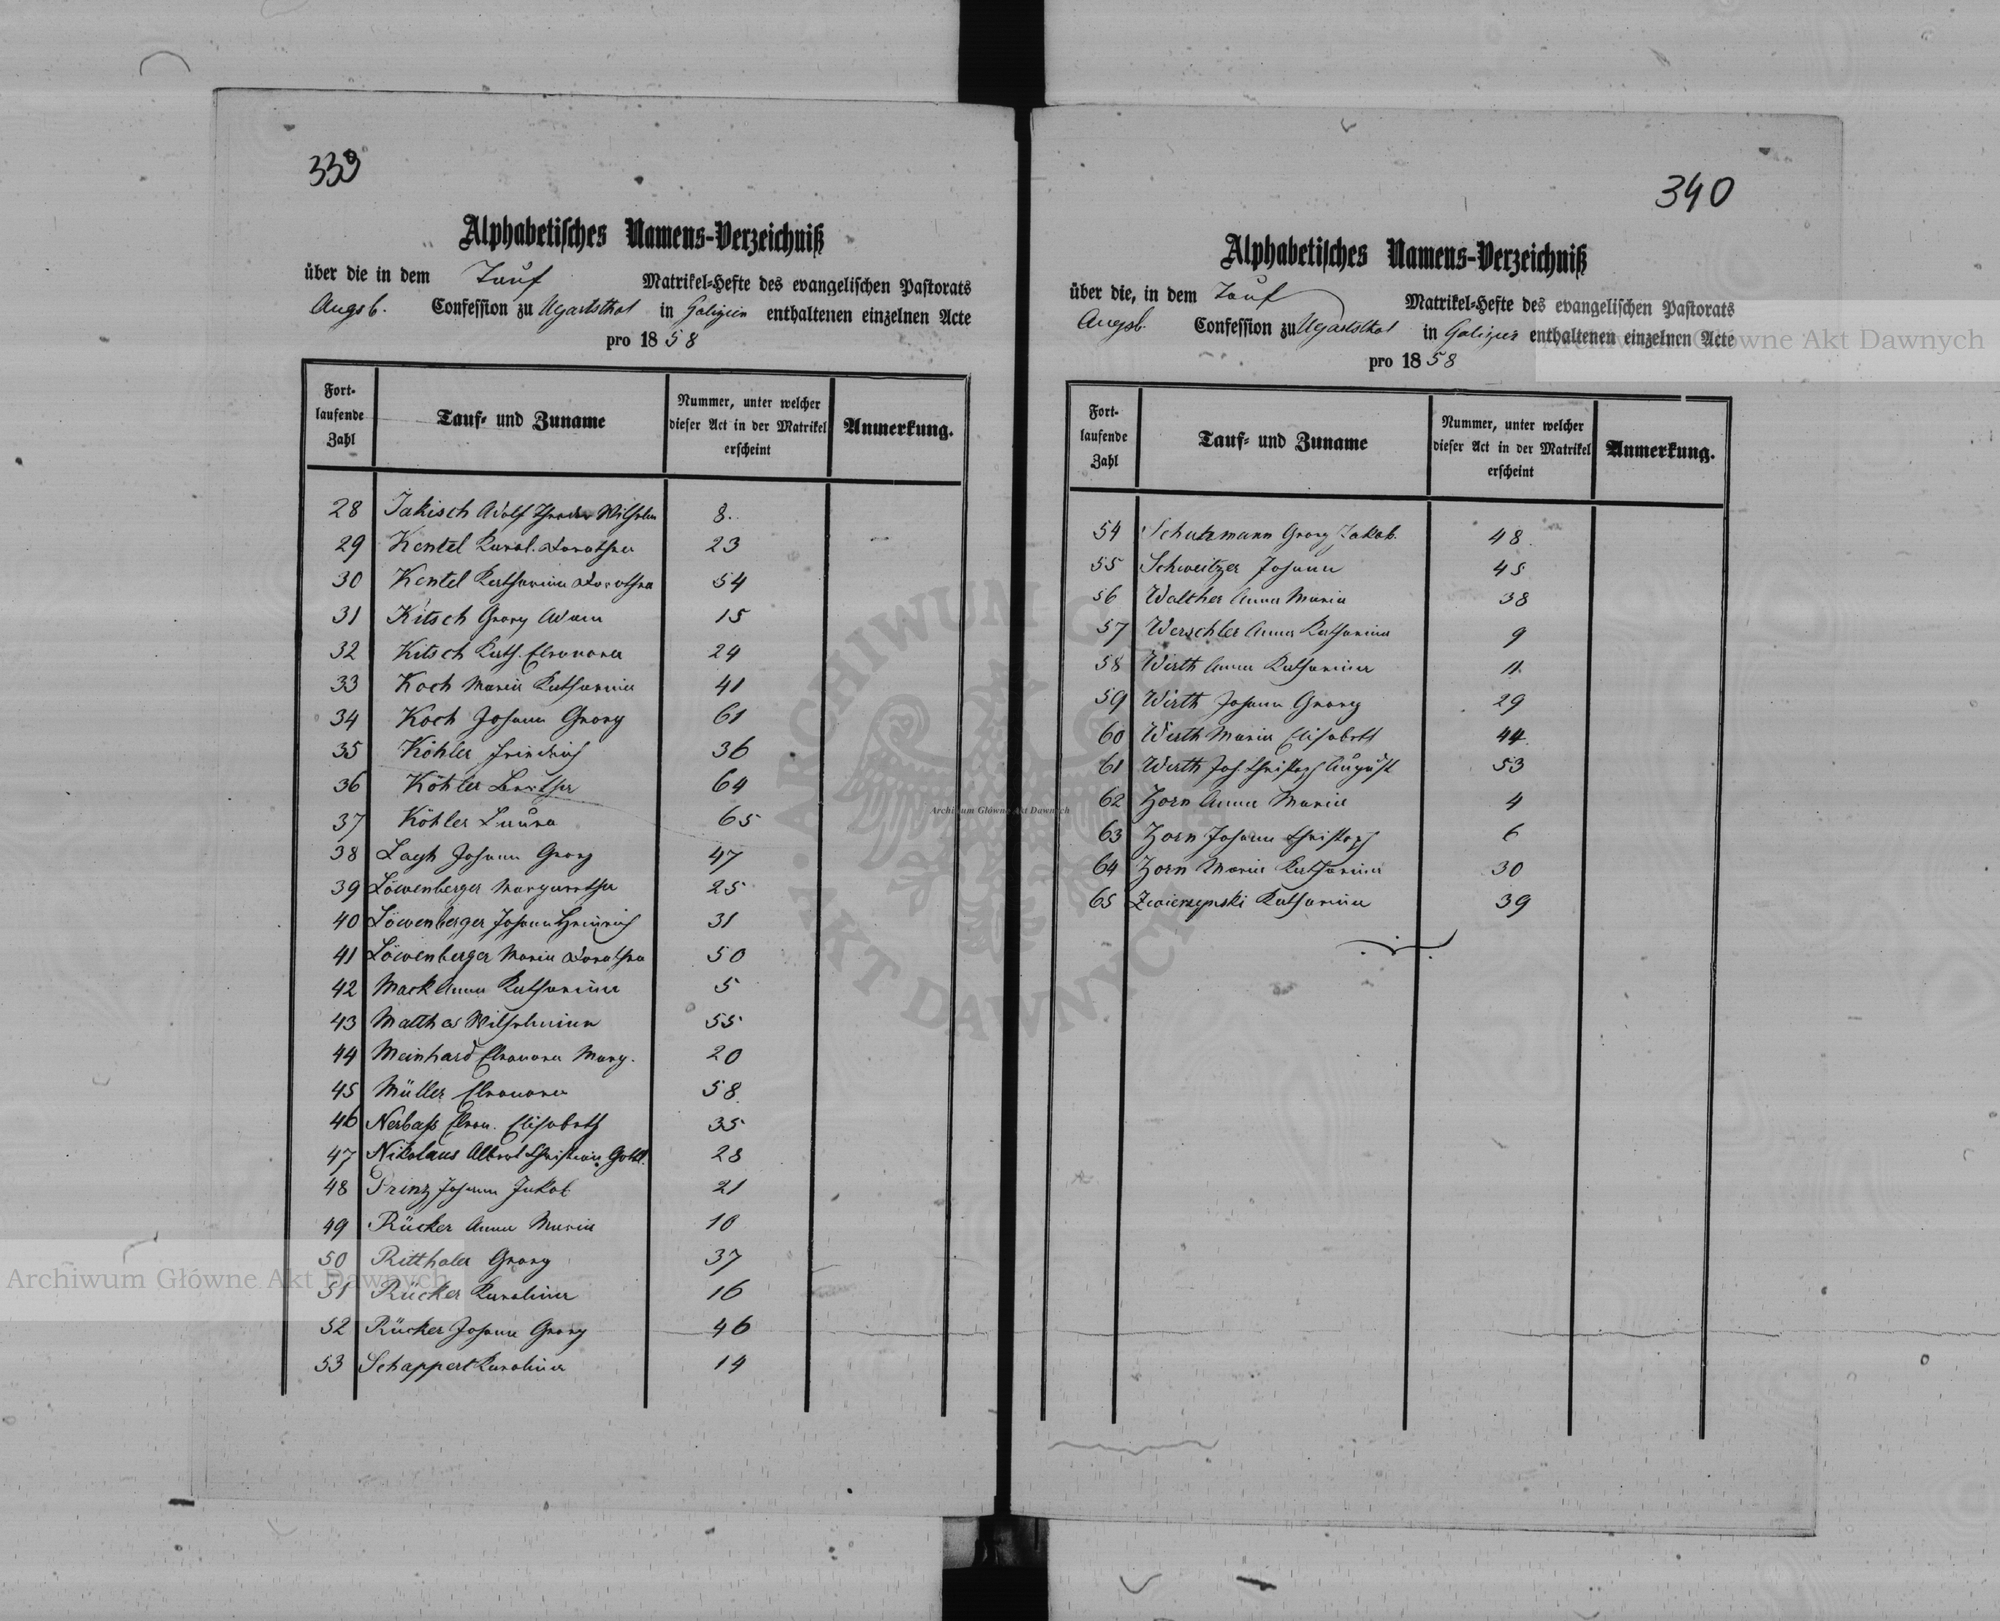 339
Alphabetisches Namens-Verzeichniß
über die in dem Tauf Matrikel-Hefte des evangelischen Pastorats
Augsb. Confession zu Ugartsthal in Galizien enthaltenen einzelnen Acte
pro 1858
Fort-laufende Zahl Tauf- und Zuname Nummer, unter welcher dieser Act in der Matrikel erscheint Anmerkung.
28 Jakisch Adolf Wilhelm 8.
29 Kentel Karol. Dorothea 23
30 Kentel Katharina Dorothea 54
31 Kitsch Georg Adam 15
32 Kitsch Kath. Eleonora 24
33 Koch Maria Katharina 41
34 Koch Johann Georg 61
35 Köhler Friedrich 36
36 Köhler 64
37 Köhler Laura 65
38 Johann Georg 47
39 Löwenberger Margaretha 25
40 Löwenberger Johann Heinrich 31
41 Löwenberger Maria Dorothea 50
42 Mack Anna Katharina 5
43 Matthes Wilhelmine 55
44 Meinhard Eleonora Marg. 20
45 Müller Eleonora 58
46 Nerbaß Eleon. Elisabeth 35
47 Nikolaus Albert Christian Gottl. 28
48 Prinz Johann Jakob 21
49 Rücker Anna Maria 10
50 Ritthaler Georg 37
51 Rücker Karolina 16
52 Rücker Johann Georg 46
53 Schappert Karolina 14
340
Alphabetisches Namens-Verzeichniß
über die, in dem Tauf Matrikel-Hefte des evangelischen Pastorats
Augsb. Confession zu Ugartsthal in Galizien enthaltenen einzelnen Acte
pro 1858
Fort-laufende Zahl Tauf- und Zuname Nummer, unter welcher dieser Act in der Matrikel erscheint Anmerkung.
54 Schutzmann Georg Jakob. 48
55 Schweitzer Johann 45
56 Walther Anna Maria 38
57 Werschler Anna Katharina 9
58 Wirth Anna Katharina 11.
59 Wirth Johann Georg 29
60 Wirth Maria Elisabeth 44
61 Wirth Joh. Christoph August 53
62 Zorn Anna Maria 4
63 Zorn Johann Christoph 6
64 Zorn Maria Katharina 30
65 Katharina 39
Archiwum Główne Akt Dawnych
ARCHIWUM AKT DAWNYCH
Archiwum Główne Akt Dawnych
Archiwum Główne Akt Dawnych